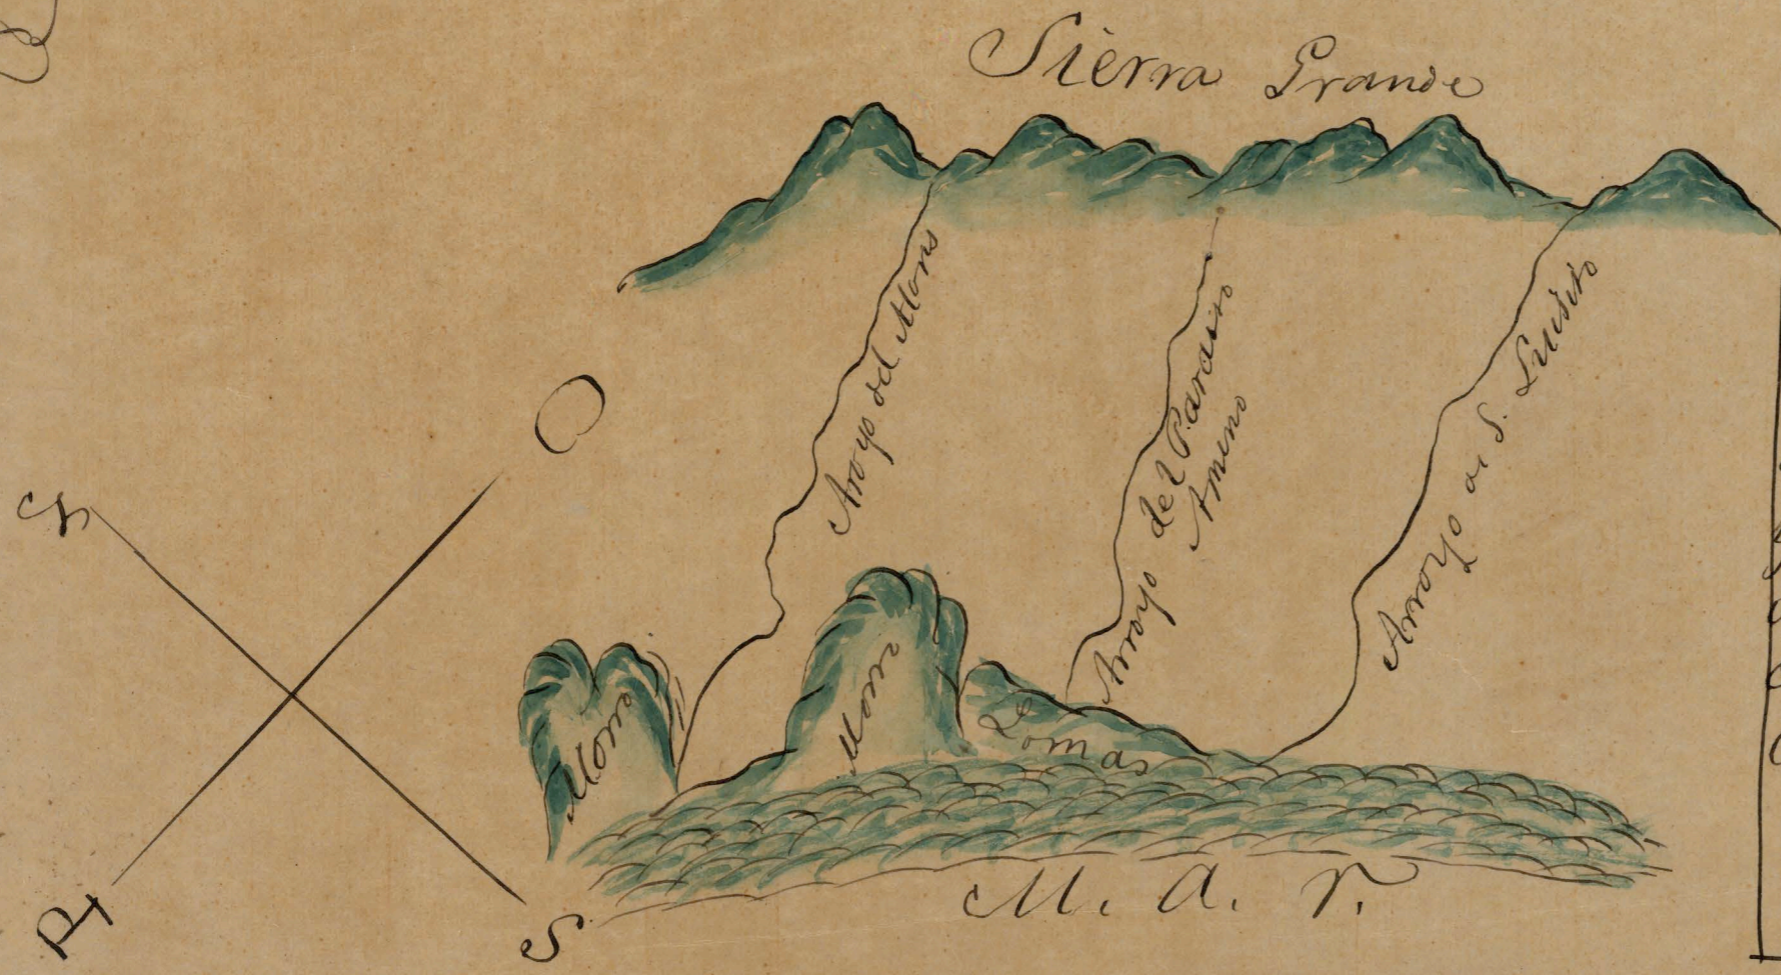 Sierra Grande
O
Arroyo del Morro
Arroyo del Paraiso
Ameno
Arroyo de S. Luisito
Morro
Morro
Lomas
M. a. r.
S